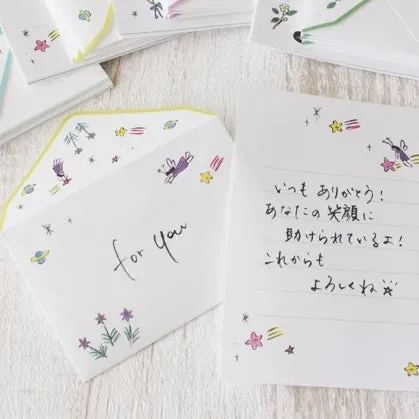 for you
いつも ありがとう!
あなたの笑顔に
助けられているよ!
これからも
よろしくね☆